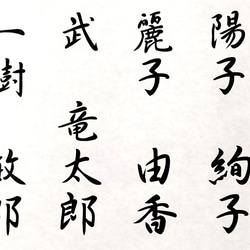 陽子 絢子
麗子 由香
武 竜太郎
一樹 敏郎